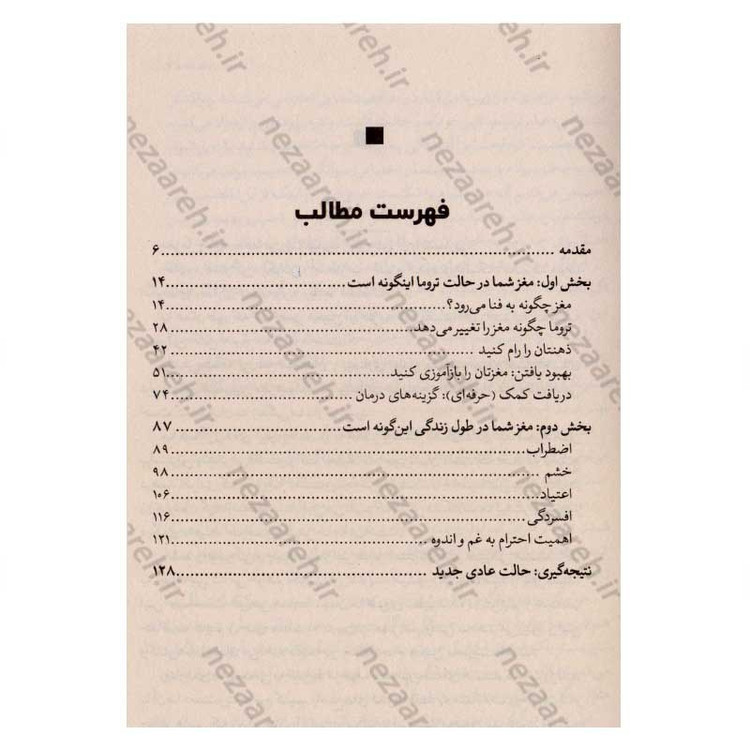 فهرست مطالب
مقدمه ........ ۶
بخش اول: مغز شما در حالت تروما اینگونه است ........ ۱۴
مغز چگونه به فنا می‌رود؟ ........ ۱۴
تروما چگونه مغز را تغییر می‌دهد ........ ۲۸
ذهنتان را رام کنید ........ ۴۲
بهبود یافتن: مغزتان را بازآموزی کنید ........ ۵۱
دریافت کمک (حرفه‌ای): گزینه‌های درمان ........ ۷۴
بخش دوم: مغز شما در طول زندگی این‌گونه است ........ ۸۷
اضطراب ........ ۸۹
خشم ........ ۹۸
اعتیاد ........ ۱۰۶
افسردگی ........ ۱۱۶
اهمیت احترام به غم و اندوه ........ ۱۲۱
نتیجه‌گیری: حالت عادی جدید ........ ۱۲۸
nezaareh.ir